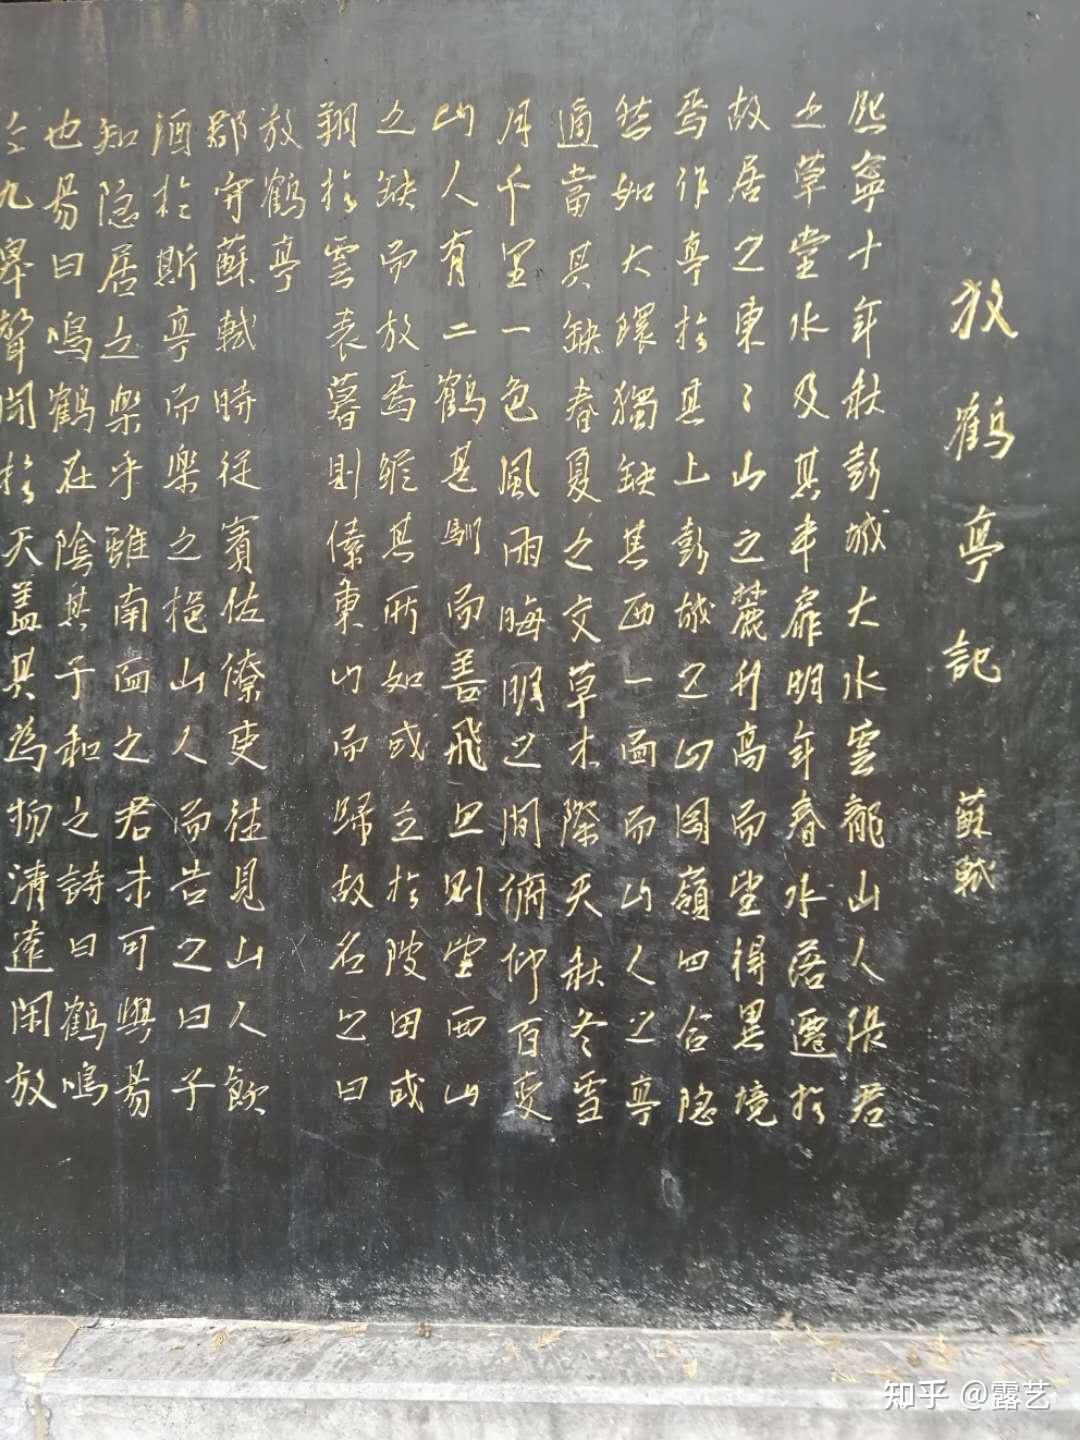 放鶴亭記 蘇軾
熙寧十年秋彭城大水雲龍山人張君
之草堂水及其半扉明年春水落遷於
故居之東〻山之麓升高而望得異境
焉作亭於其上彭城之山岡嶺四合隱
然如大環獨缺其西一面而山人之亭
適當其缺春夏之交草木際天秋冬雪
月千里一色風雨晦明之間俯仰百變
山人有二鶴甚馴而善飛旦則望西山
之缺而放焉縱其所如或立於陂田或
翔於雲表暮則傃東山而歸故名之曰
放鶴亭
郡守蘇軾時從賓佐僚吏往見山人飲
酒於斯亭而樂之挹山人而告之曰子
知隱居之樂乎雖南面之君未可與易
也易曰鳴鶴在陰其子和之詩曰鶴鳴
九皋聲聞於天蓋其為物清遠閑放
知乎 @露艺